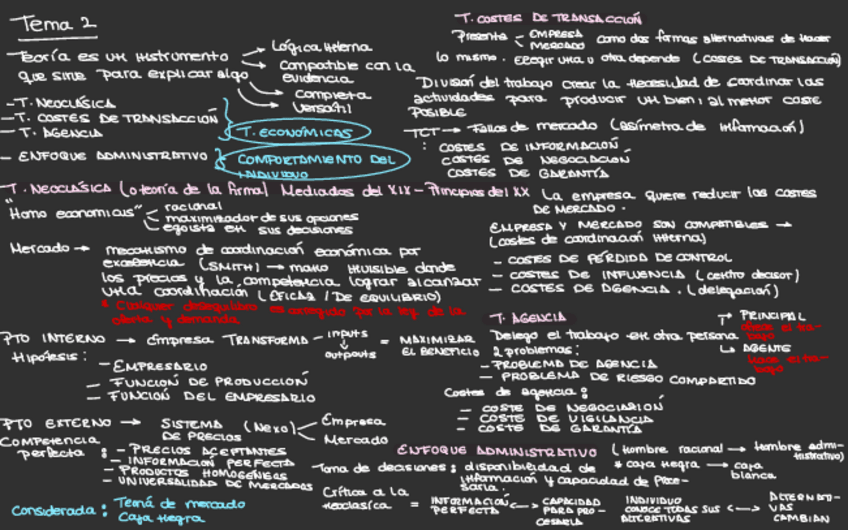 Tema 2
Teoría es un instrumento
que sirve para explicar algo
Lógica interna
Compatible con la
evidencia
Completa
Versátil
- T. NEOCLÁSICA
- T. COSTES DE TRANSACCIÓN
- T. AGENCIA
T. ECONÓMICAS
- ENFOQUE ADMINISTRATIVO
COMPORTAMIENTO DEL
INDIVIDUO
T. NEOCLÁSICA (o teoría de la firma) Mediados del XIX - Principios del XX
"Homo economicus"
racional
maximizador de sus opciones
egoísta en sus decisiones
Mercado → mecanismo de coordinación económica por
excelencia (SMITH) → mano invisible donde
los precios y la competencia logran alcanzar
una coordinación (EFICAZ / DE EQUILIBRIO)
* Cualquier desequilibrio es corregido por la ley de la
oferta y demanda
PTO INTERNO → Empresa TRANSFORMA - inputs
outputs
= MAXIMIZAR
EL BENEFICIO
Hipótesis:
- EMPRESARIO
- FUNCIÓN DE PRODUCCIÓN
- FUNCIÓN DEL EMPRESARIO
PTO EXTERNO → SISTEMA
DE PRECIOS
(Nexo)
Empresa
Mercado
Competencia
perfecta :
- PRECIOS ACEPTANTES
- INFORMACIÓN PERFECTA
- PRODUCTOS HOMOGÉNEOS
- UNIVERSALIDAD DE MERCADOS
Considerada: Teoría de mercado
Caja negra
T. COSTES DE TRANSACCIÓN
Presenta
EMPRESA
MERCADO
como dos formas alternativas de hacer
lo mismo. Elegir una u otra depende (COSTES DE TRANSACCIÓN)
División del trabajo crea la necesidad de coordinar las
actividades para producir un bien; al menor coste
POSIBLE
TCT → Fallos de mercado (asimetría de información)
: COSTES DE INFORMACIÓN
COSTES DE NEGOCIACIÓN
COSTES DE GARANTÍA
La empresa quiere reducir los COSTES
DE MERCADO.
EMPRESA Y MERCADO SON COMPATIBLES →
(costes de coordinación interna)
- COSTES DE PÉRDIDA DE CONTROL
- COSTES DE INFLUENCIA (centro decisor)
- COSTES DE AGENCIA. (delegación)
T. AGENCIA
Delego el trabajo en otra persona
PRINCIPAL
ofrece el tra-
bajo
AGENTE
hace el tra-
bajo
2 problemas:
- PROBLEMA DE AGENCIA
- PROBLEMA DE RIESGO COMPARTIDO
Costes de agencia:
- COSTE DE NEGOCIACIÓN
- COSTE DE VIGILANCIA
- COSTE DE GARANTÍA
ENFOQUE ADMINISTRATIVO (Hombre racional → hombre admi-
nistrativo)
Toma de decisiones: disponibilidad de
información y capacidad de proce-
sarla.
* caja negra → caja
blanca
Crítica a la
neoclásica = INFORMACIÓN
PERFECTA
CAPACIDAD
PARA PRO-
CESARLA
INDIVIDUO
CONOCE TODAS SUS
ALTERNATIVAS
ALTERNATI-
VAS
CAMBIAN